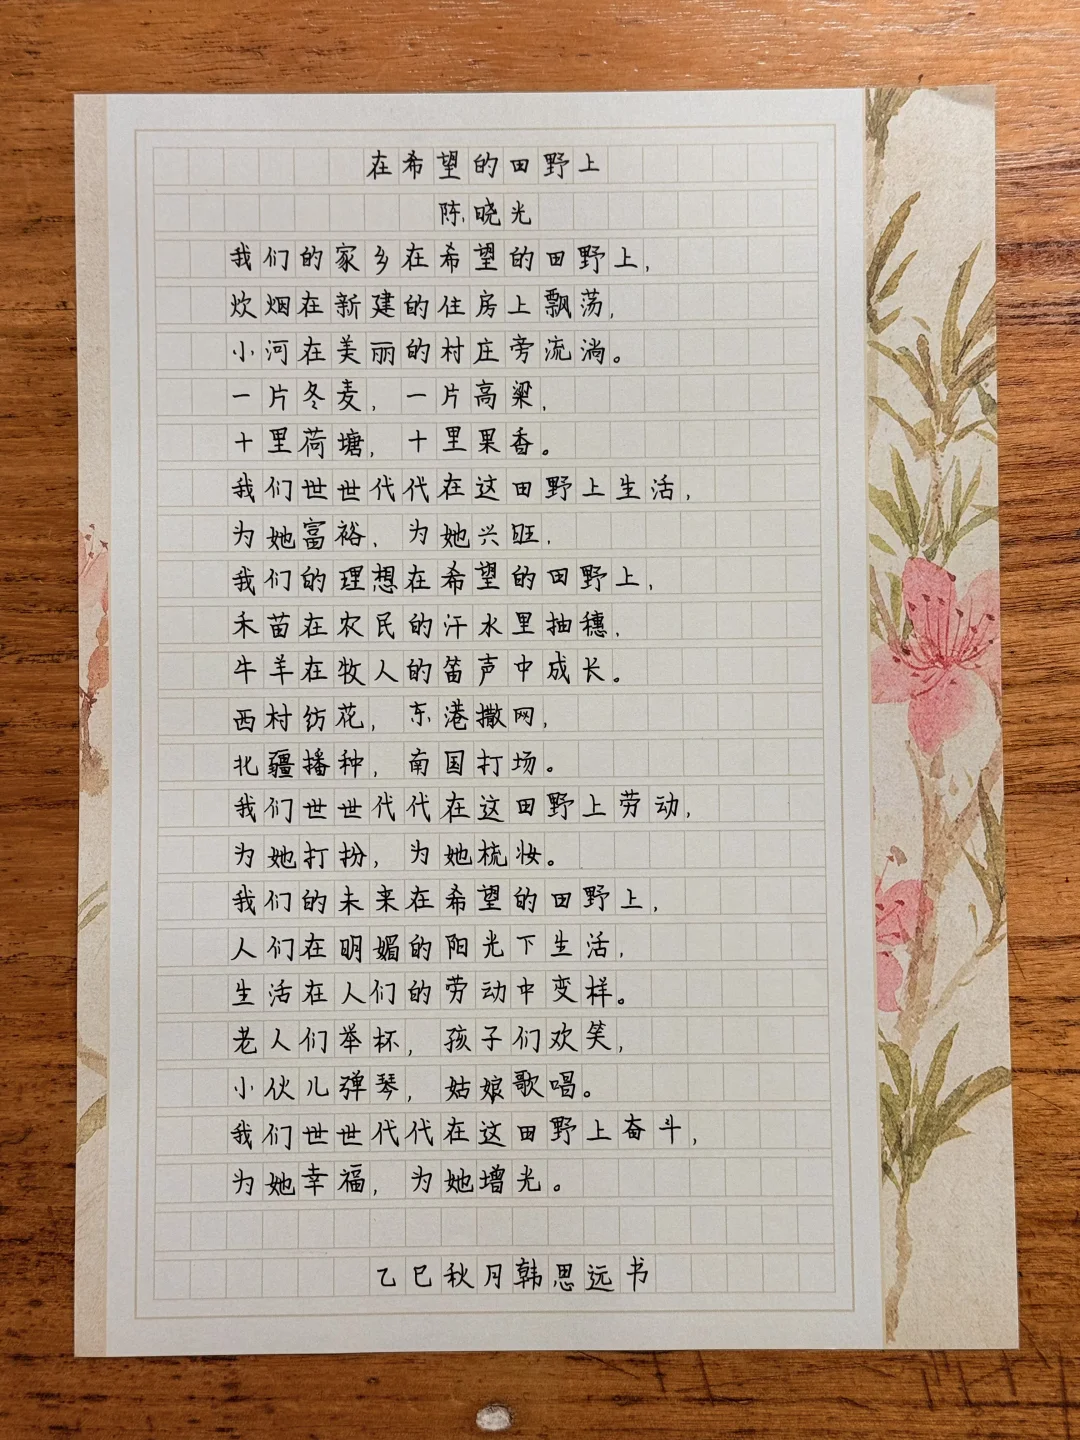 在希望的田野上
陈晓光
我们的家乡在希望的田野上，
炊烟在新建的住房上飘荡，
小河在美丽的村庄旁流淌。
一片冬麦，一片高粱，
十里荷塘，十里果香。
我们世世代代在这田野上生活，
为她富裕，为她兴旺，
我们的理想在希望的田野上，
禾苗在农民的汗水里抽穗，
牛羊在牧人的笛声中成长。
西村纺花，东港撒网，
北疆播种，南国打场。
我们世世代代在这田野上劳动，
为她打扮，为她梳妆。
我们的未来在希望的田野上，
人们在明媚的阳光下生活，
生活在人们的劳动中变样。
老人们举杯，孩子们欢笑，
小伙儿弹琴，姑娘歌唱。
我们世世代代在这田野上奋斗，
为她幸福，为她增光。
乙巳秋月韩思远书